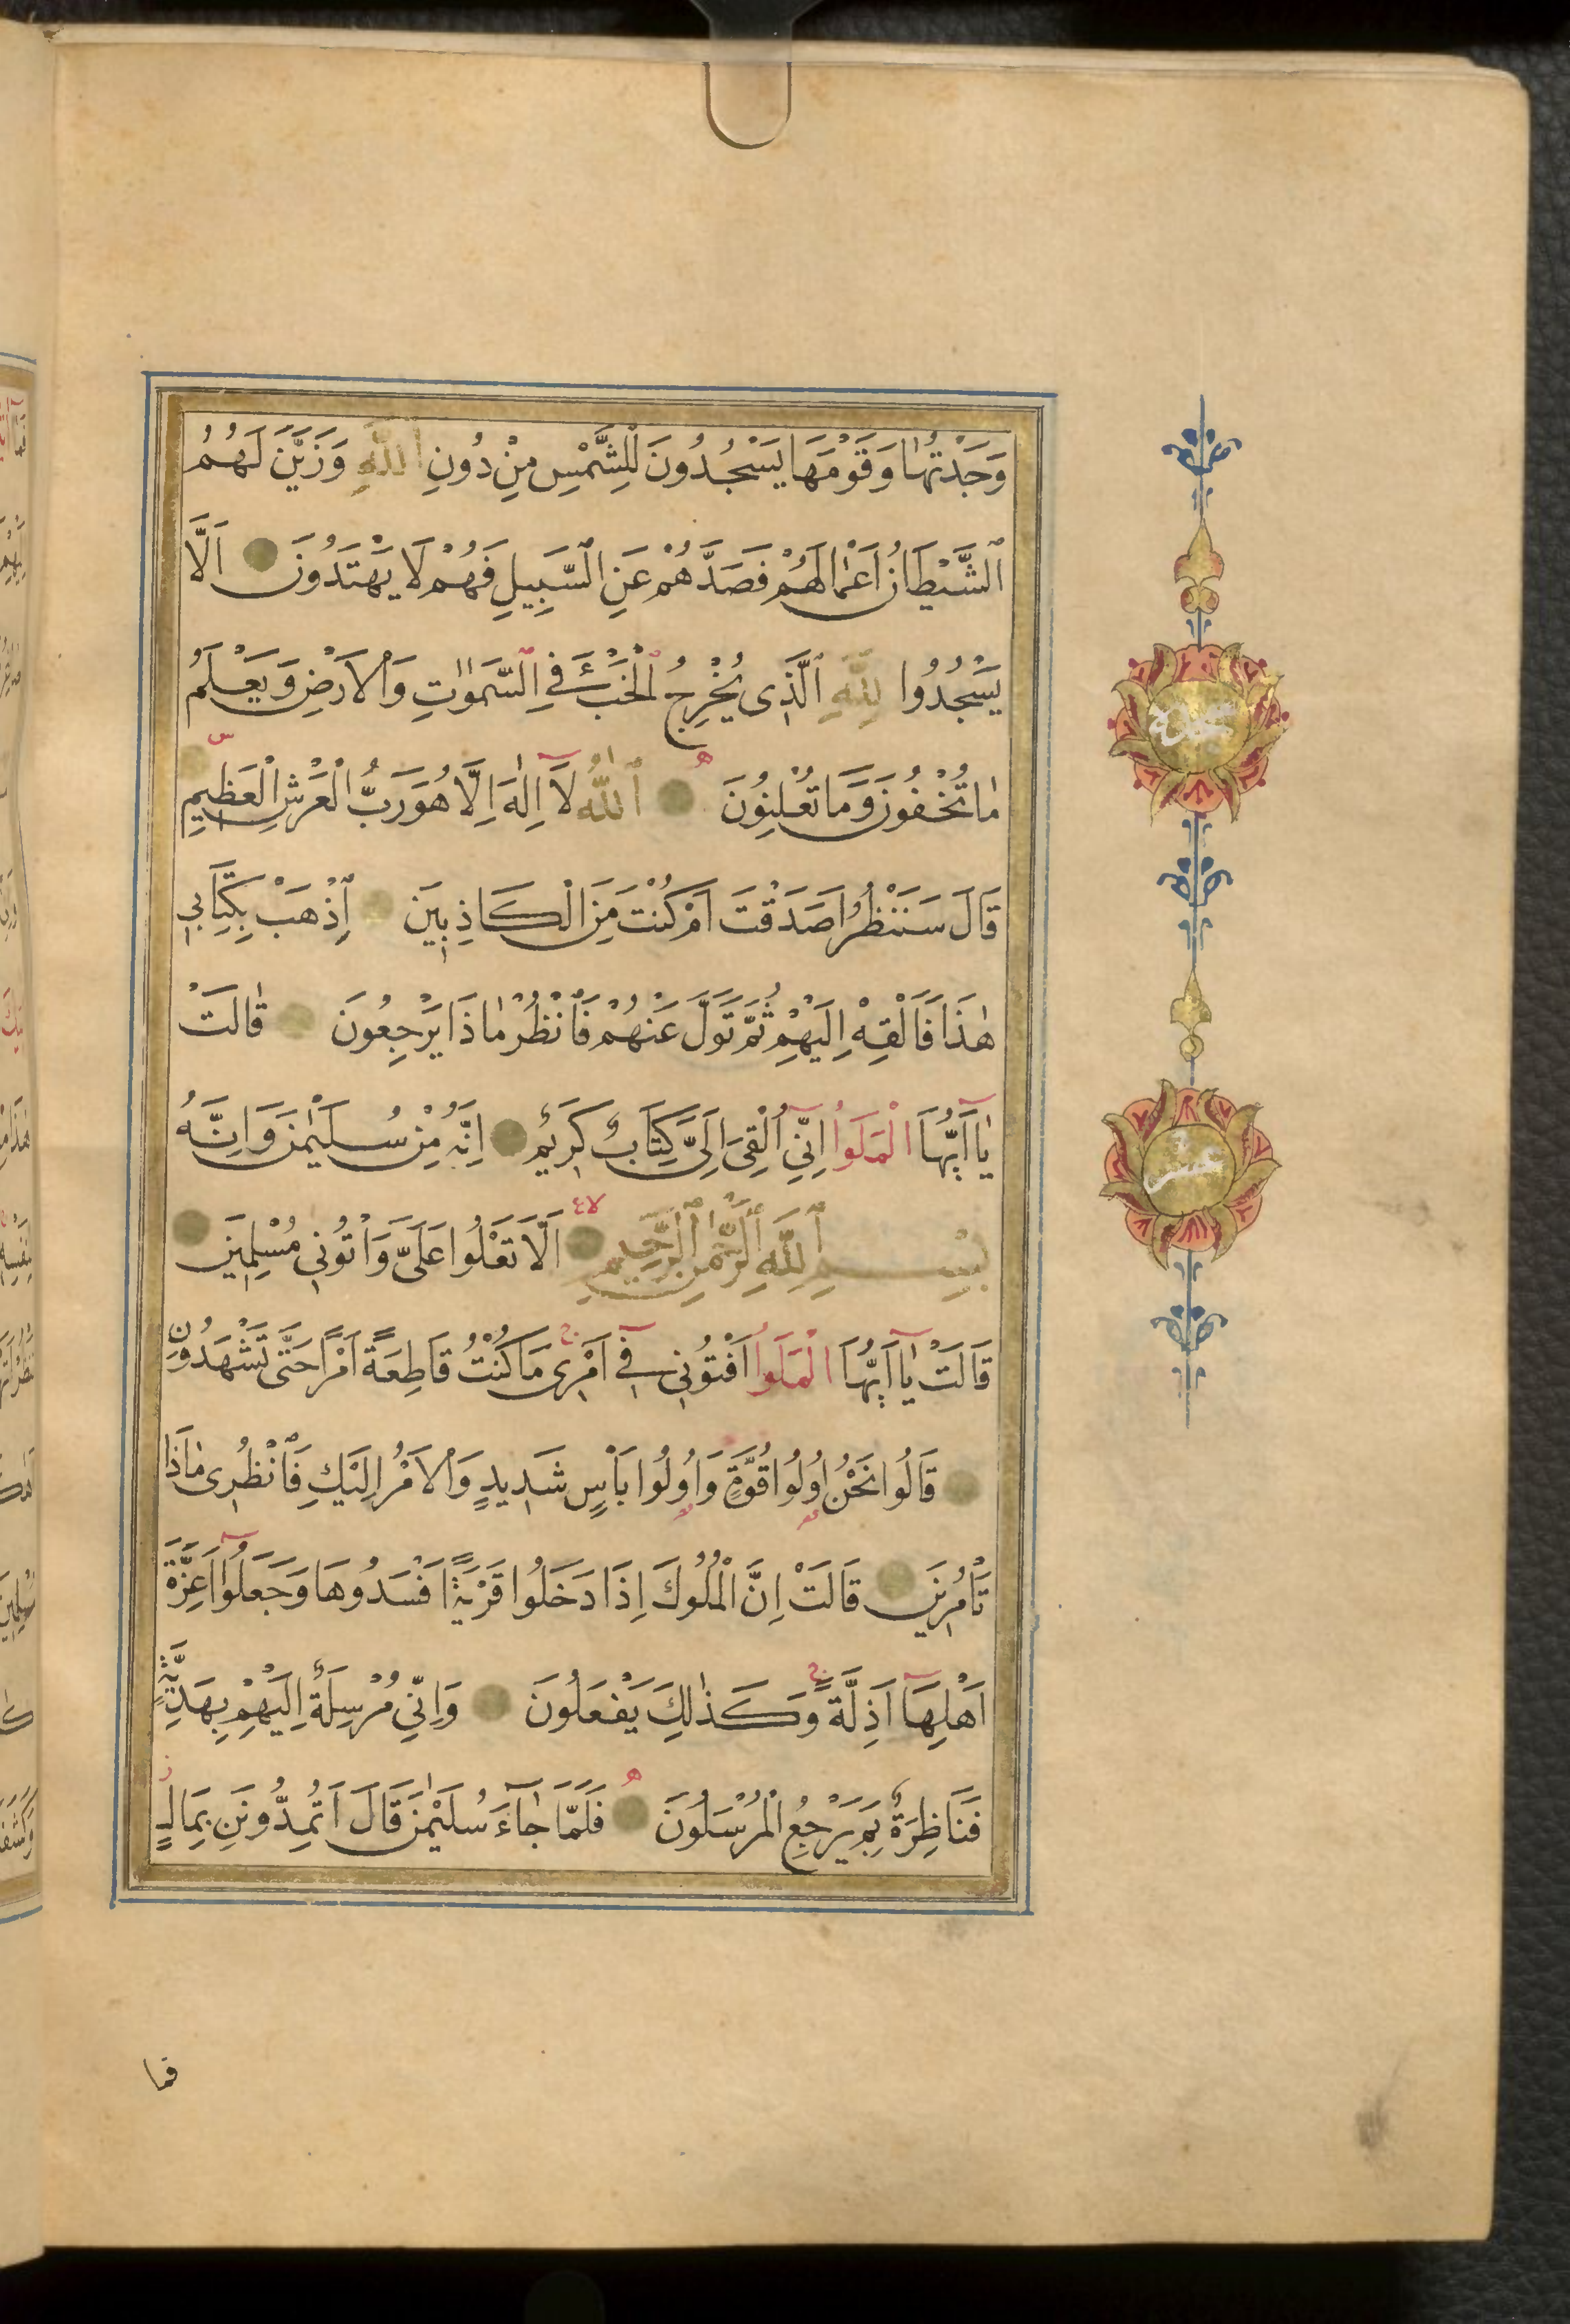 وَجَدْتُهٰا وَقَوْمَهَا يَسْجُدُونَ لِلشَّمْسِ مِنْ دُونِ اللّٰهِ وَزَيَّنَ لَهُمُ
الشَّيْطَانُ اَعْمٰالَهُمْ فَصَدَّهُمْ عَنِ السَّبِيلِ فَهُمْ لَا يَهْتَدُونَ اَلَّا
يَسْجُدُوا لِلّٰهِ الَّذِى يُخْرِجُ الْخَبْءَ فِى السَّمٰوٰاتِ وَالْاَرْضِ وَيَعْلَمُ
مٰا تُخْفُونَ وَمَا تُعْلِنُونَ اَللّٰهُ لَا اِلٰهَ اِلَّا هُوَ رَبُّ الْعَرْشِ الْعَظِيمِ
قَالَ سَنَنْظُرُ اَصَدَقْتَ اَمْ كُنْتَ مِنَ الْكَاذِبِينَ اِذْهَبْ بِكِتَابِى
هٰذَا فَاَلْقِهْ اِلَيْهِمْ ثُمَّ تَوَلَّ عَنْهُمْ فَانْظُرْ مٰاذَا يَرْجِعُونَ قٰالَتْ
يٰا اَيُّهَا الْمَلَؤُا اِنِّى اُلْقِىَ اِلَىَّ كِتَابٌ كَرِيمٌ اِنَّهُ مِنْ سُلَيْمٰنَ وَاِنَّهُ
بِسْمِ اللّٰهِ الرَّحْمٰنِ الرَّحِيمِ اَلَّا تَعْلُوا عَلَىَّ وَاْتُونِى مُسْلِمِينَ
قَالَتْ يٰا اَيُّهَا الْمَلَؤُا اَفْتُونِى فِى اَمْرِى مَا كُنْتُ قَاطِعَةً اَمْرًا حَتَّى تَشْهَدُونِ
قَالُوا نَحْنُ اُولُوا قُوَّةٍ وَاُولُوا بَاْسٍ شَدِيدٍ وَالْاَمْرُ اِلَيْكِ فَانْظُرِى مٰاذَا
تَاْمُرِينَ قَالَتْ اِنَّ الْمُلُوكَ اِذَا دَخَلُوا قَرْيَةً اَفْسَدُوهَا وَجَعَلُوا اَعِزَّةَ
اَهْلِهَا اَذِلَّةً وَكَذٰلِكَ يَفْعَلُونَ وَاِنِّى مُرْسِلَةٌ اِلَيْهِمْ بِهَدِيَّةٍ
فَنَاظِرَةٌ بِمَ يَرْجِعُ الْمُرْسَلُونَ فَلَمَّا جٰاءَ سُلَيْمٰنَ قَالَ اَتُمِدُّونَنِ بِمَالٍ
فما
سجدة
عشر